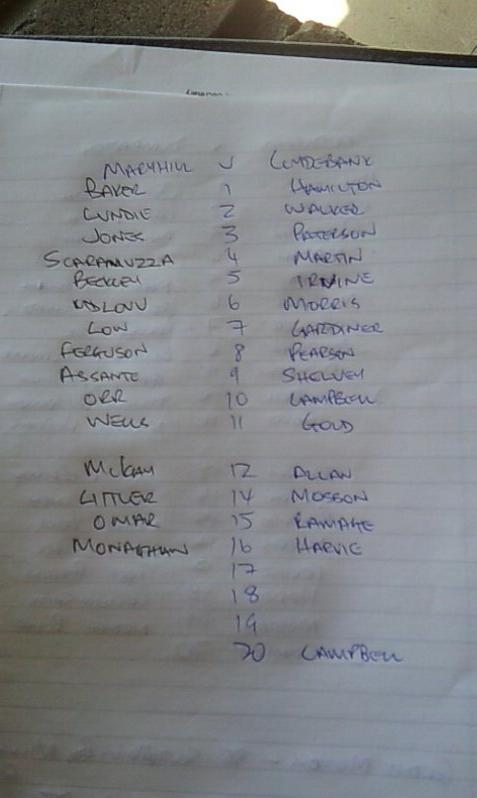 MARYHILL V CLYDEBANK
BAKER 1 HAMILTON
LUNDIE 2 WALKER
JONES 3 PATERSON
SCARAMUZZA 4 MARTIN
BECKLEY 5 IRVINE
6 MORRIS
LOW 7 GARDINER
FERGUSON 8 PEARSON
ASSANTE 9 SHELVEY
ORR 10 CAMPBELL
WELLS 11 GOLD
McKAY 12 ALLAN
LITTLER 14 MOSSON
OMAR 15 RAMAGE
MONAGHAN 16 HARVIE
17
18
19
20 CAMPBELL